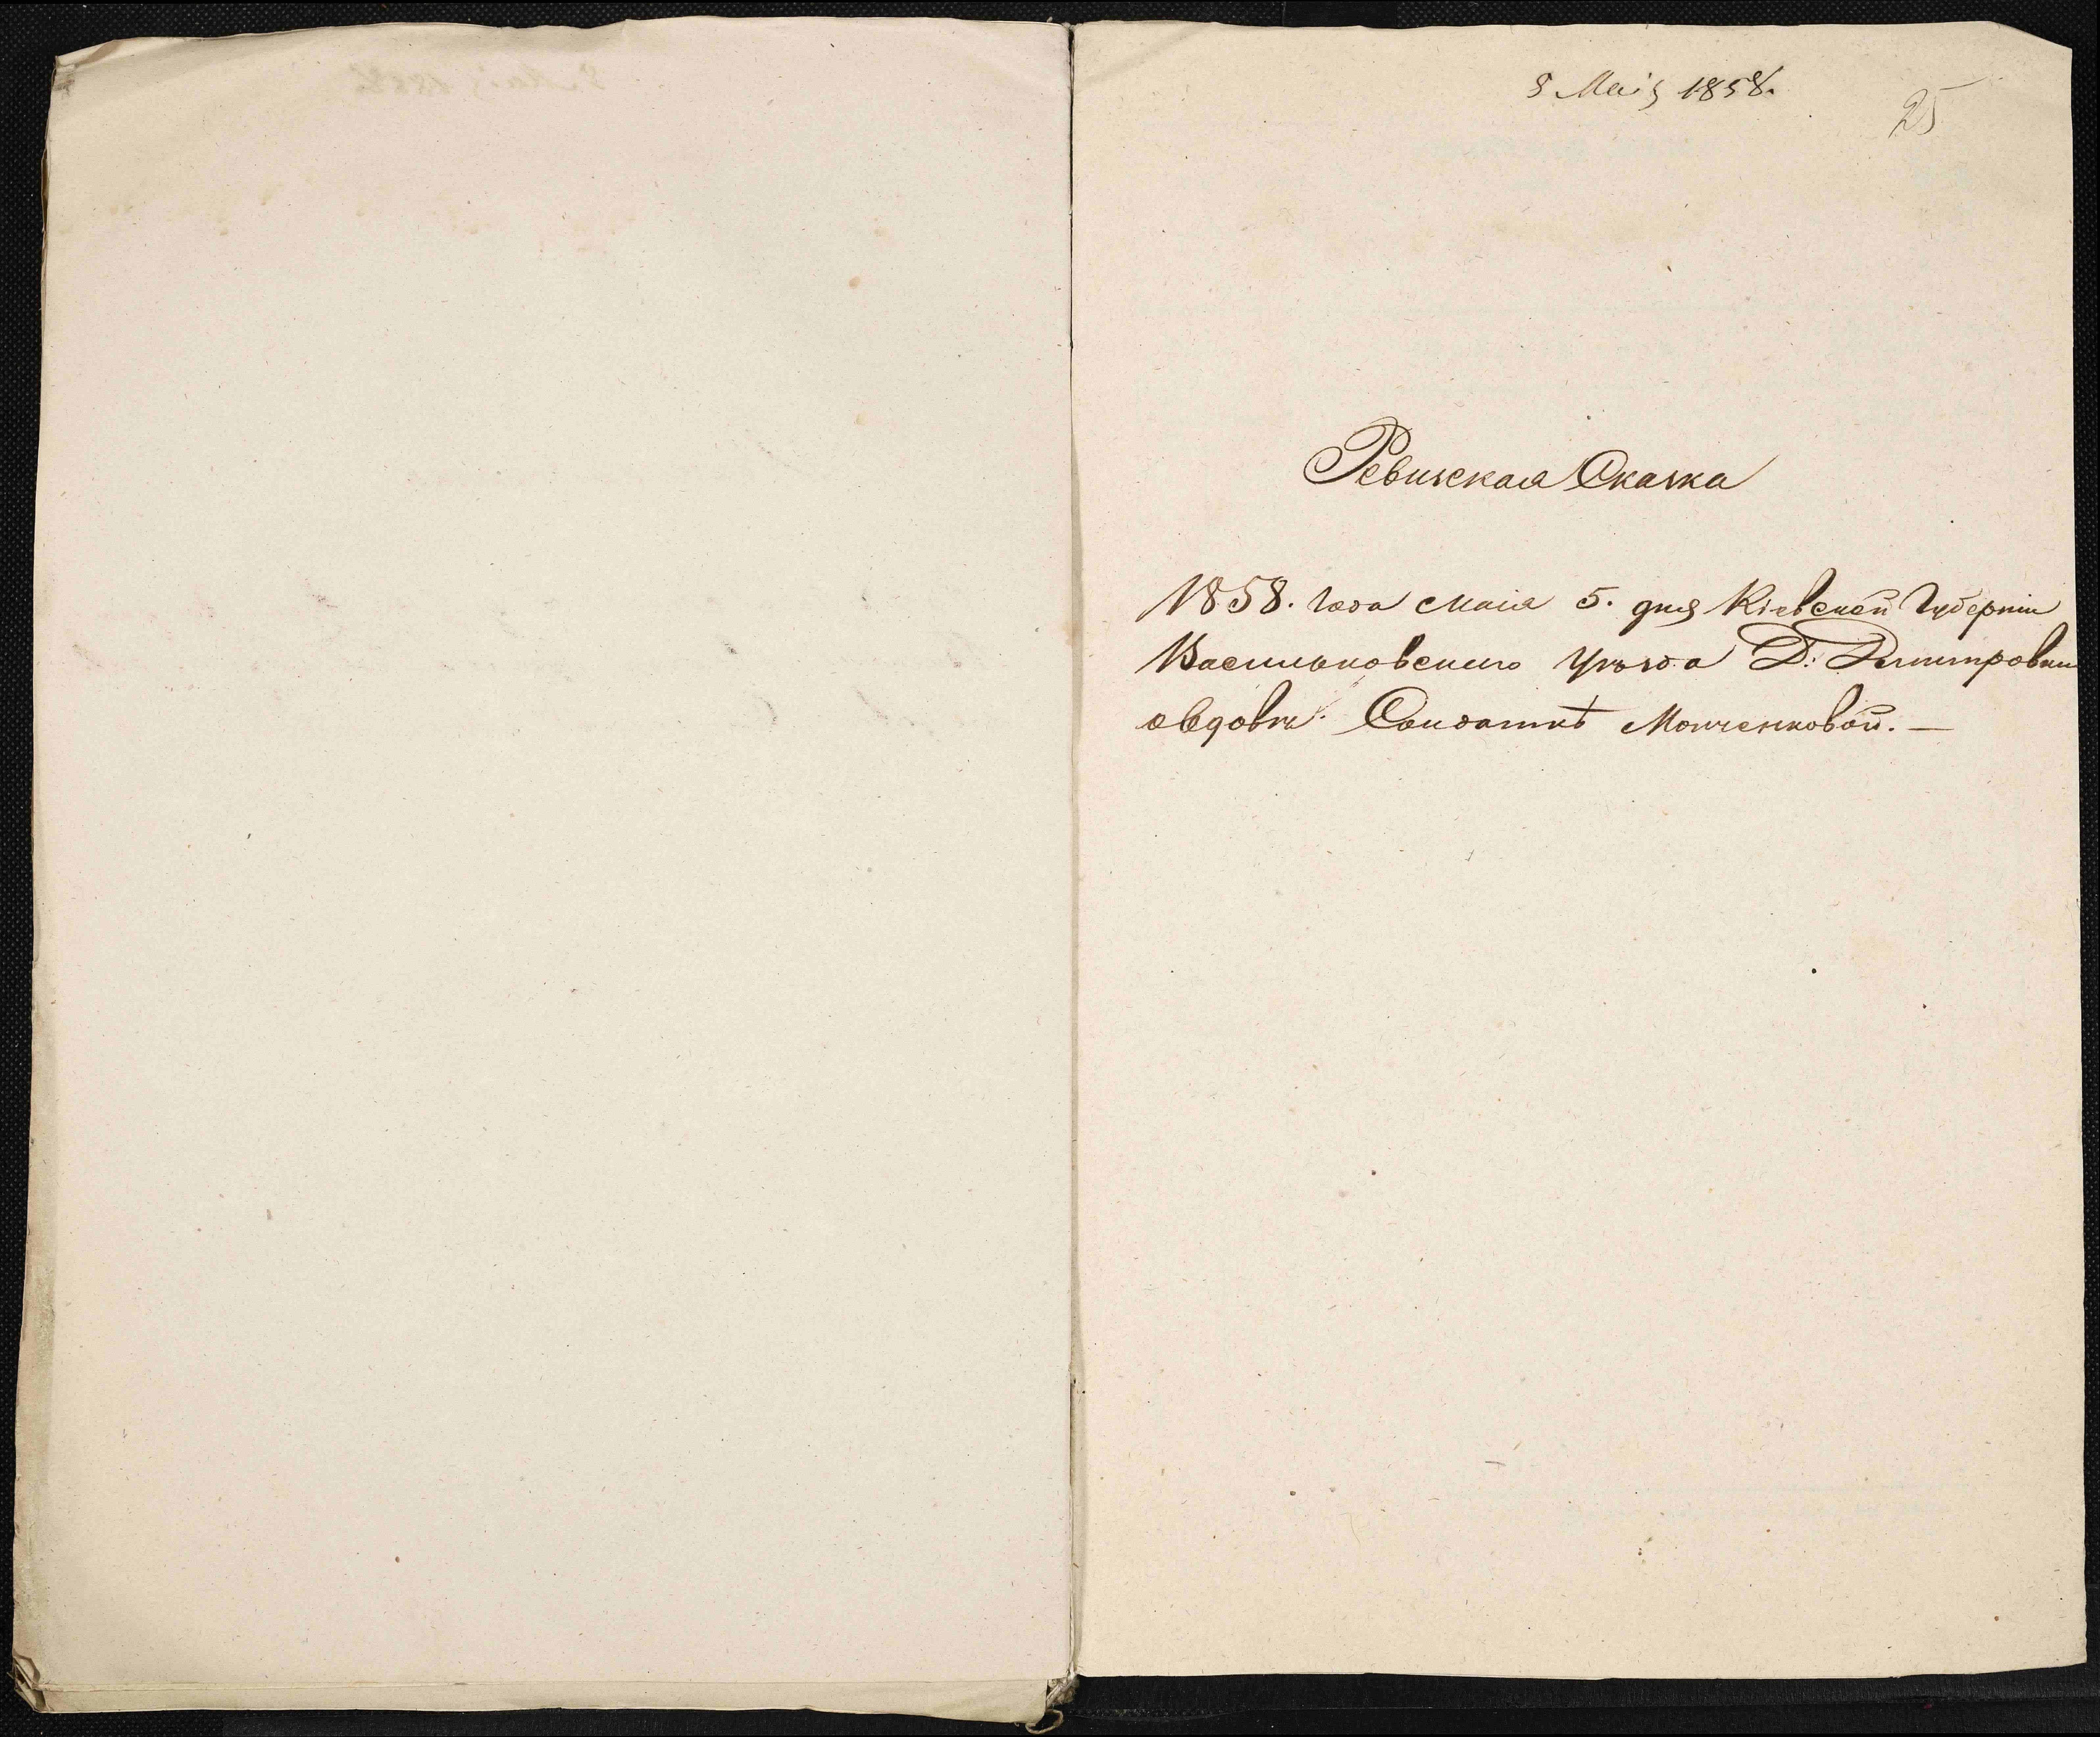 8 Маія 1858.
25
Ревизская Сказка
1858. года Маія 5. дня Кіевской Губерніи
Васильковского Уѣзда Д: Димитровки
овдовѣ. Солдаткѣ Мончсенковой. —